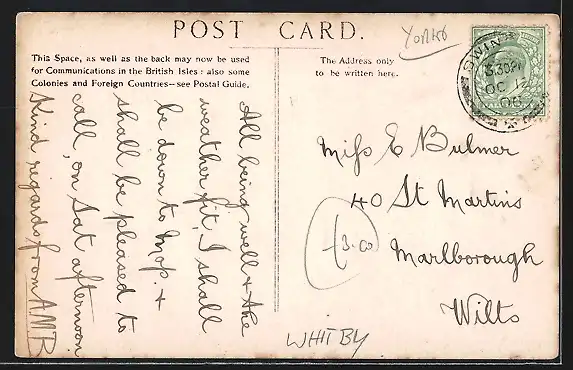 POST CARD.
This Space, as well as the back may now be used
for Communications in the British Isles: also some
Colonies and Foreign Countries—see Postal Guide.
The Address only
to be written here.
All being well & the
weather fit, I shall
be down to Mop. &
shall be pleased to
call, on Sat afternoon
Kind regards from A.M.B.
Miss E Bulmer
40 St Martins
Marlborough
Wilts
WHITBY
3.30PM
OC 12